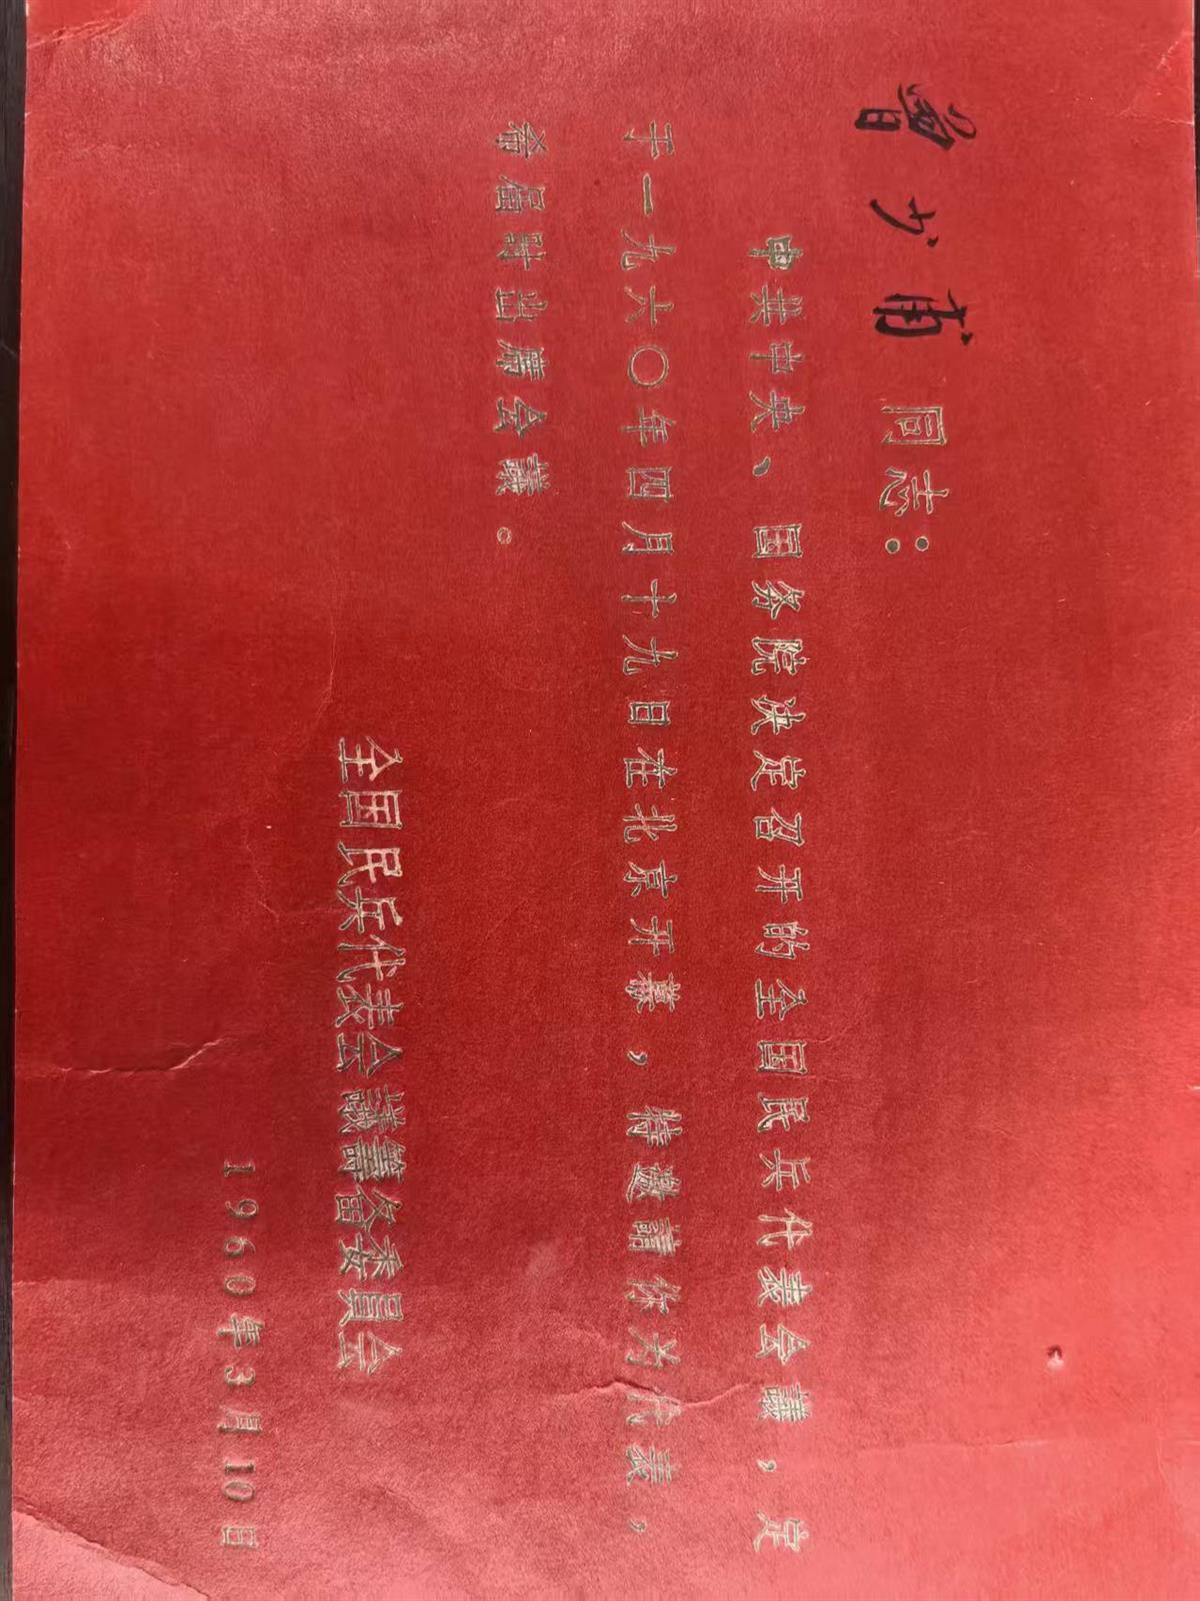 曾少甫 同志:
中共中央、国务院决定召开的全国民兵代表会議，定
于一九六〇年四月十九日在北京开幕，特邀請你为代表，
希届时出席会議。
全国民兵代表会議筹备委員会
1960年3月10日